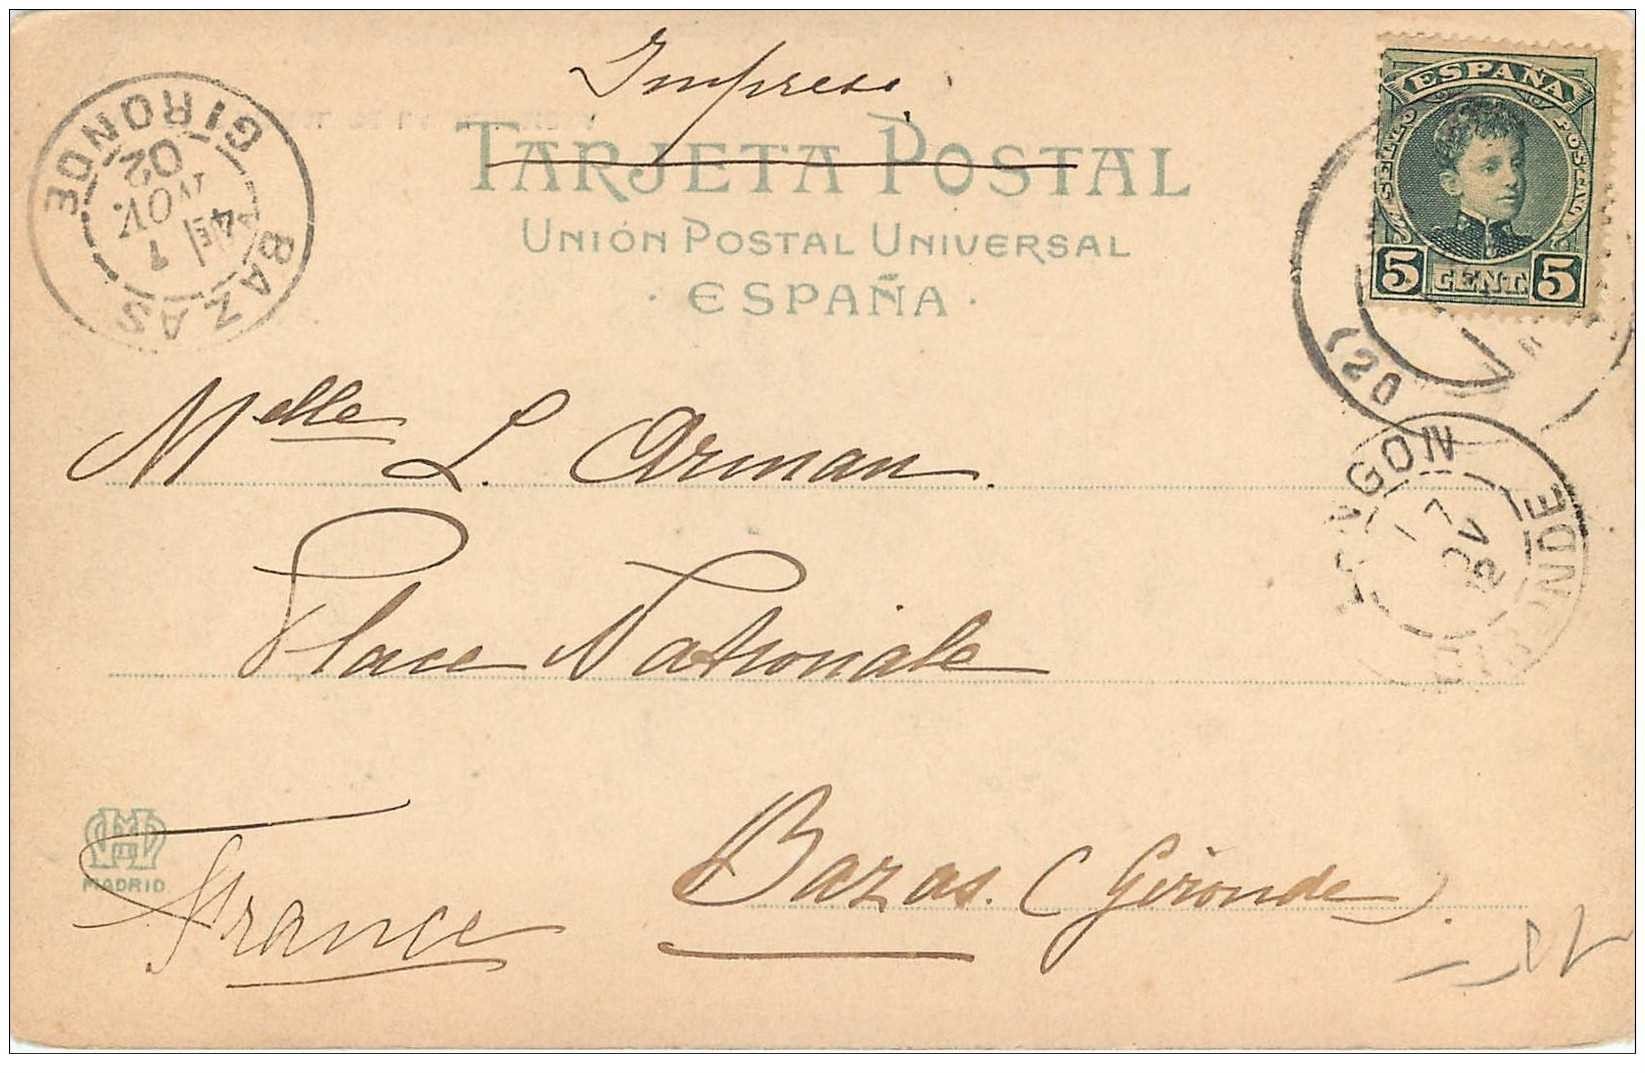 Impreso
TARJETA POSTAL
UNIÓN POSTAL UNIVERSAL
· ESPAÑA ·
ESPAÑA
SELLO POSTAL
5 CENT. 5
BAZAS
GIRONDE
4E
1
NOV.
02
(20
LANGON
17
NOV
02
GIRONDE
Melle L. Arman.
Place Nationale
Bazas. (Gironde).
France
MADRID